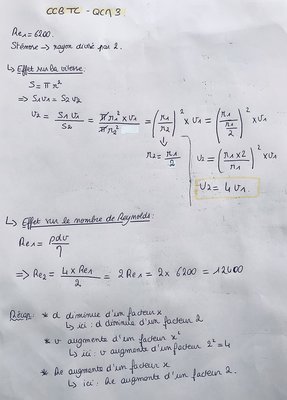 CCB TC - QCM 3
Re1 = 6200.
Sténose → rayon divisé par 2.
↳ Effet sur la vitesse:
S = π r²
⇒ S1 v1 = S2 v2
v2 = S1 v1 / S2 = π r1² × v1 / π r2² = (r1 / r2)² × v1 = (r1 / (r1 / 2))² × v1
r2 = r1 / 2
v2 = (r1 × 2 / r1)² × v1
v2 = 4 v1.
↳ Effet sur le nombre de Reynolds:
Re1 = ρdv / η
⇒ Re2 = 4 × Re1 / 2 = 2 Re1 = 2 × 6200 = 12400
* d diminue d'un facteur x
↳ ici : d diminue d'un facteur 2
* v augmente d'un facteur x²
↳ ici : v augmente d'un facteur 2² = 4
* Re augmente d'un facteur x.
↳ ici : Re augmente d'un facteur 2.